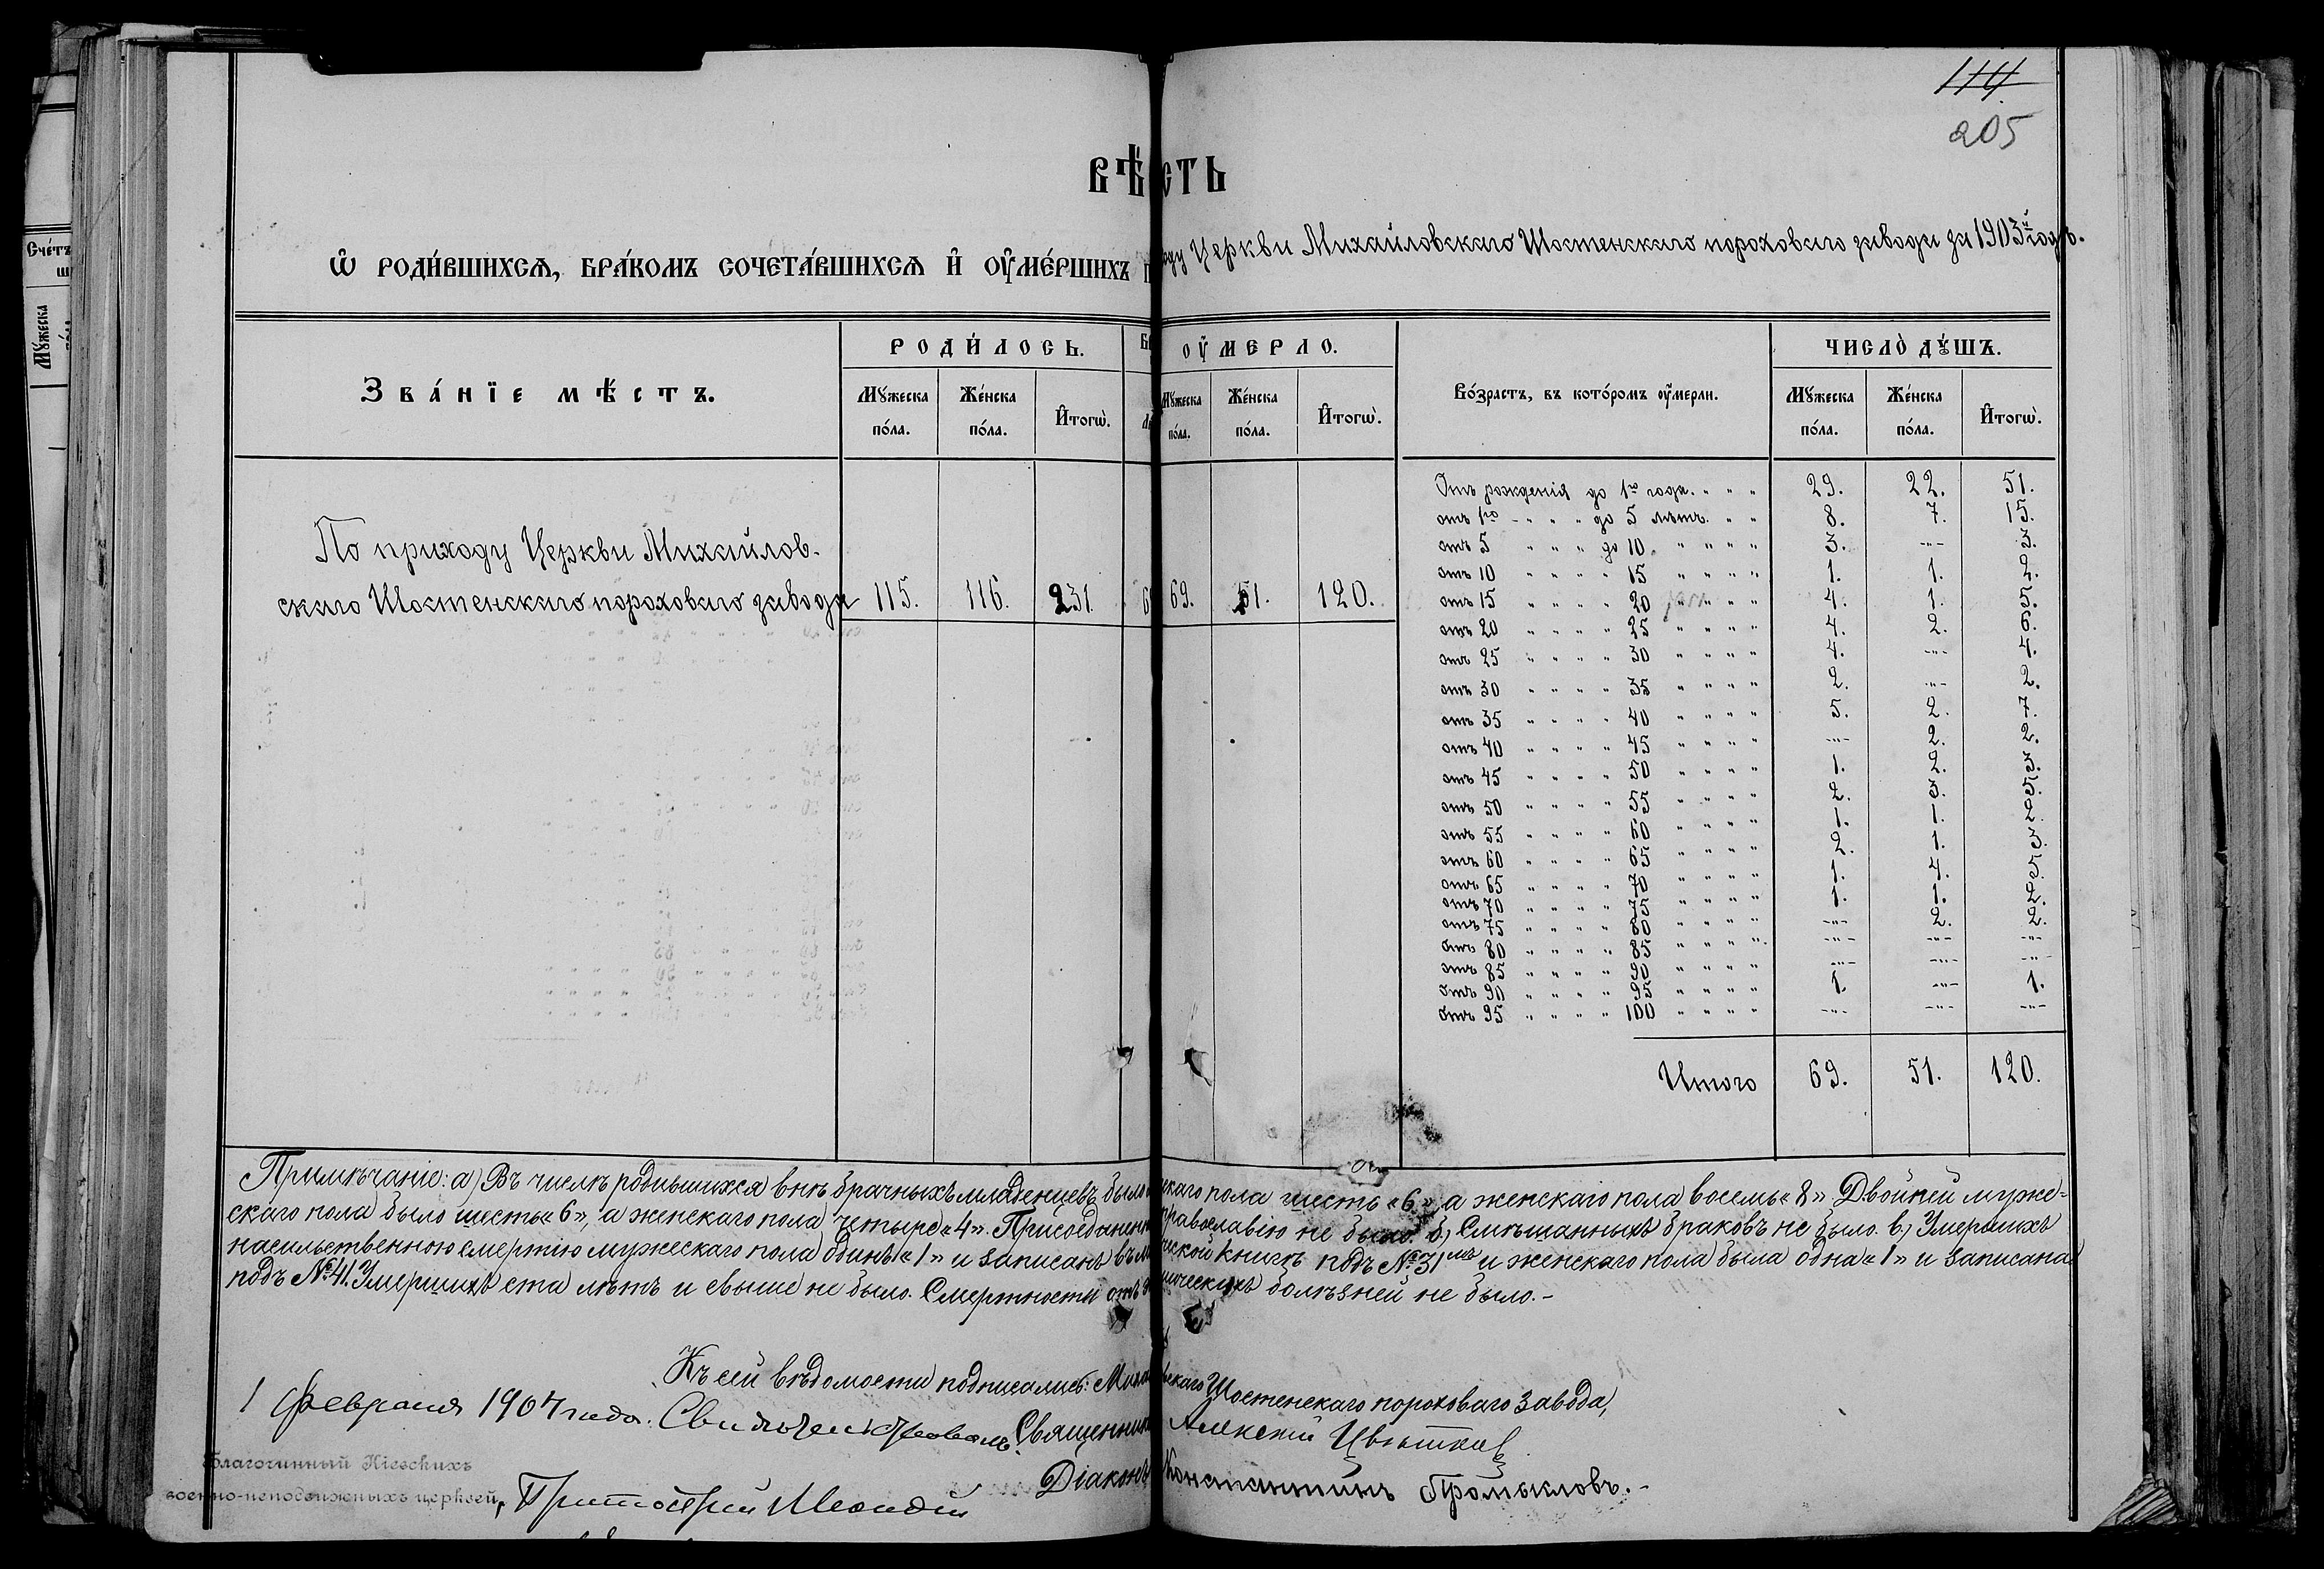 114
205
ВѢ СТЬ
Ѡ РОДИ́ВШИХСѦ, БРА́КОМЪ СОЧЕТА́ВШИХСѦ И҆ ОУ҆МЕ́РШИХЪ П оду Церкви Михайловскаго Шостенскаго пороховаго завода за 1903й годъ.
Счетъ
Мꙋ́жеска
Зва́нїе мѣ́стъ.
РОДИ́ЛОСЬ.
ОУ҆МЕРЛО.
Во́зрастъ, въ кото́ромъ оу҆мерли.
ЧИСЛО̀ ДꙊ́ШЪ.
Мꙋ́жеска по́ла. Же́нска по́ла. И҆тогѡ̀.
Мꙋ́жеска по́ла. Же́нска по́ла. И҆тогѡ̀.
Мꙋ́жеска по́ла. Же́нска по́ла. И҆тогѡ̀.
По приходу Церкви Михайлов-
скаго Шостенскаго пороховаго завода 115. 116. 231. 69. 51. 120.
Отъ рожденія до 1го года. " " " 29. 22. 51.
отъ 1го - " " " до 5 лѣтъ. " " 8. 7. 15.
отъ 5 " " " до 10. " " " " 3. -"- 3.
отъ 10 " " " " 15 " " " " 1. 1. 2.
отъ 15 " " " " 20 " " " " 4. 1. 5.
отъ 20 " " " " 25 " " " " 4. 2. 6.
отъ 25 " " " " 30 " " " " 4. -"- 4.
отъ 30 " " " " 35 " " " " 2. -"- 2.
отъ 35 " " " " 40 " " " " 5. 2. 7.
отъ 40 " " " " 45 " " " " -"- 2. 2.
отъ 45 " " " " 50 " " " " 1. 2. 3.
отъ 50 " " " " 55 " " " " 2. 3. 5.
отъ 55 " " " " 60 " " " " 1. 1. 2.
отъ 60 " " " " 65 " " " " 2. 1. 3.
отъ 65 " " " " 70 " " " " 1. 4. 5.
отъ 70 " " " " 75 " " " " 1. 1. 2.
отъ 75 " " " " 80 " " " " -"- 2. 2.
отъ 80 " " " " 85 " " " " -"- -"- -"-
отъ 85 " " " " 90 " " " " -"- -"- -"-
отъ 90 " " " " 95 " " " " 1. -"- 1.
отъ 95 " " " " 100 " " " " -"- -"- -"-
Итого 69. 51. 120.
Примѣчаніе: а) Въ числѣ родившихся внѣ брачныхъ младенцевъ было скаго пола шесть «6», а женскаго пола восемь «8» Двойней муже-
скаго пола было шесть «6», а женскаго пола четыре «4». Присоединен православію не было. б) Смѣшанныхъ браковъ не было. в) Умершихъ
насильственною смертію мужескаго пола одинъ «1» и записанъ въ ческой книгѣ подъ № 31мъ и женскаго пола была одна «1» и записана
подъ № 41. Умершихъ ста лѣтъ и свыше не было. Смертности отъ ическихъ болѣзней не было.-
Къ сей вѣдомости подписались: Миха вскаго Шостенскаго пороховаго завода,
1 февраля 1904 года. Свидѣтельствовалъ Священник Алексій Цвѣтков
Благочинный Кіевскихъ
военно-неподвижныхъ церквей,
Протоіерей
Діаконъ Константинъ Громыкловъ.-